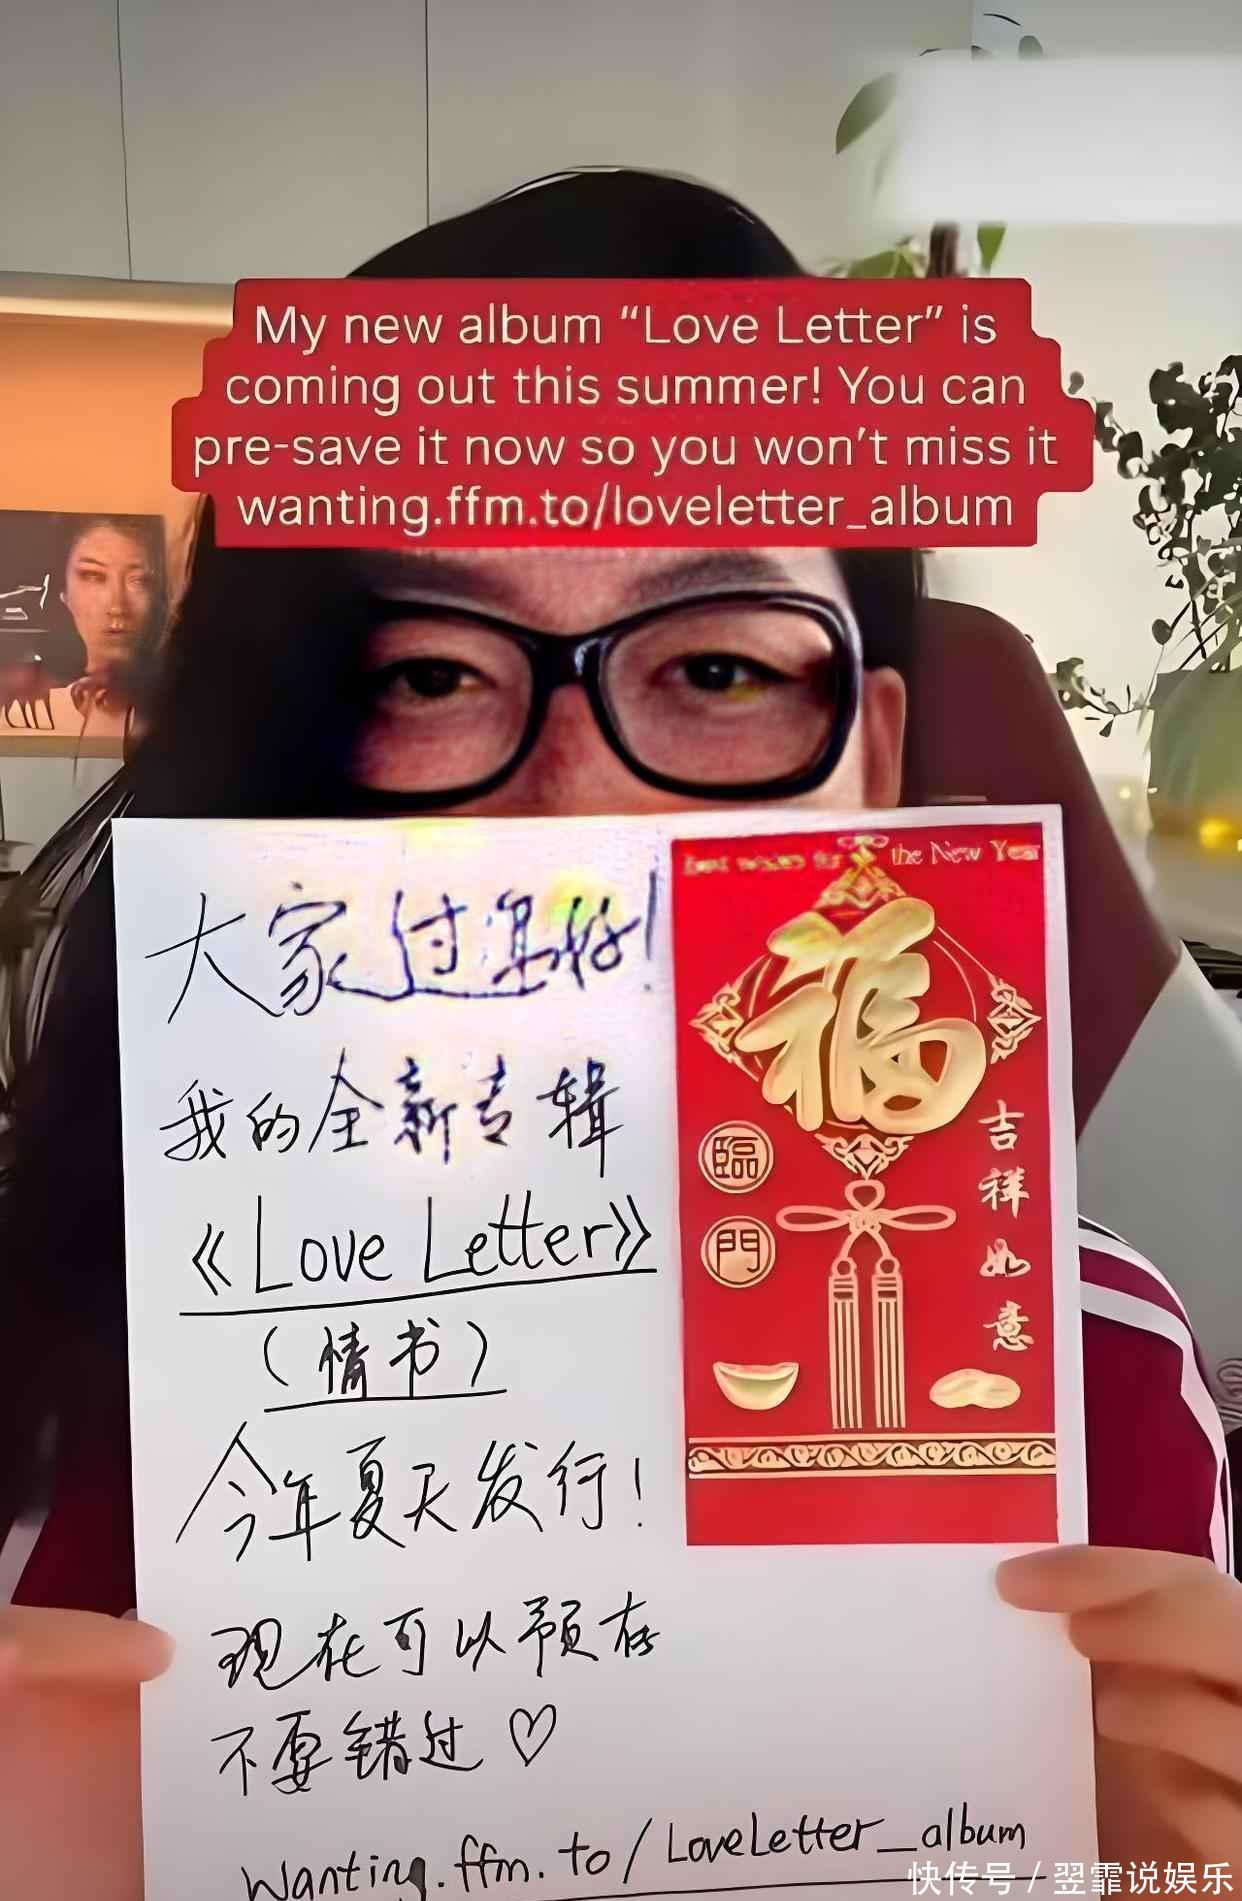 My new album “Love Letter” is
coming out this summer! You can
pre-save it now so you won't miss it
wanting.ffm.to/loveletter_album
大家过年好!
我的全新专辑
《Love Letter》
(情书)
今年夏天发行!
现在可以预存
不要错过♡
Wanting.ffm.to/LoveLetter_album
Best wishes for the New Year
福
臨
門
吉
祥
如
意
快传号/翌霏说娱乐